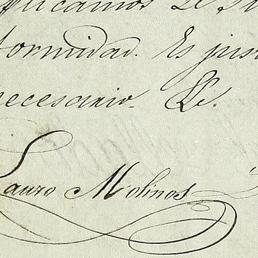 plicamos
formidad. Es jus
necesario. &c.
Lauro Molinos